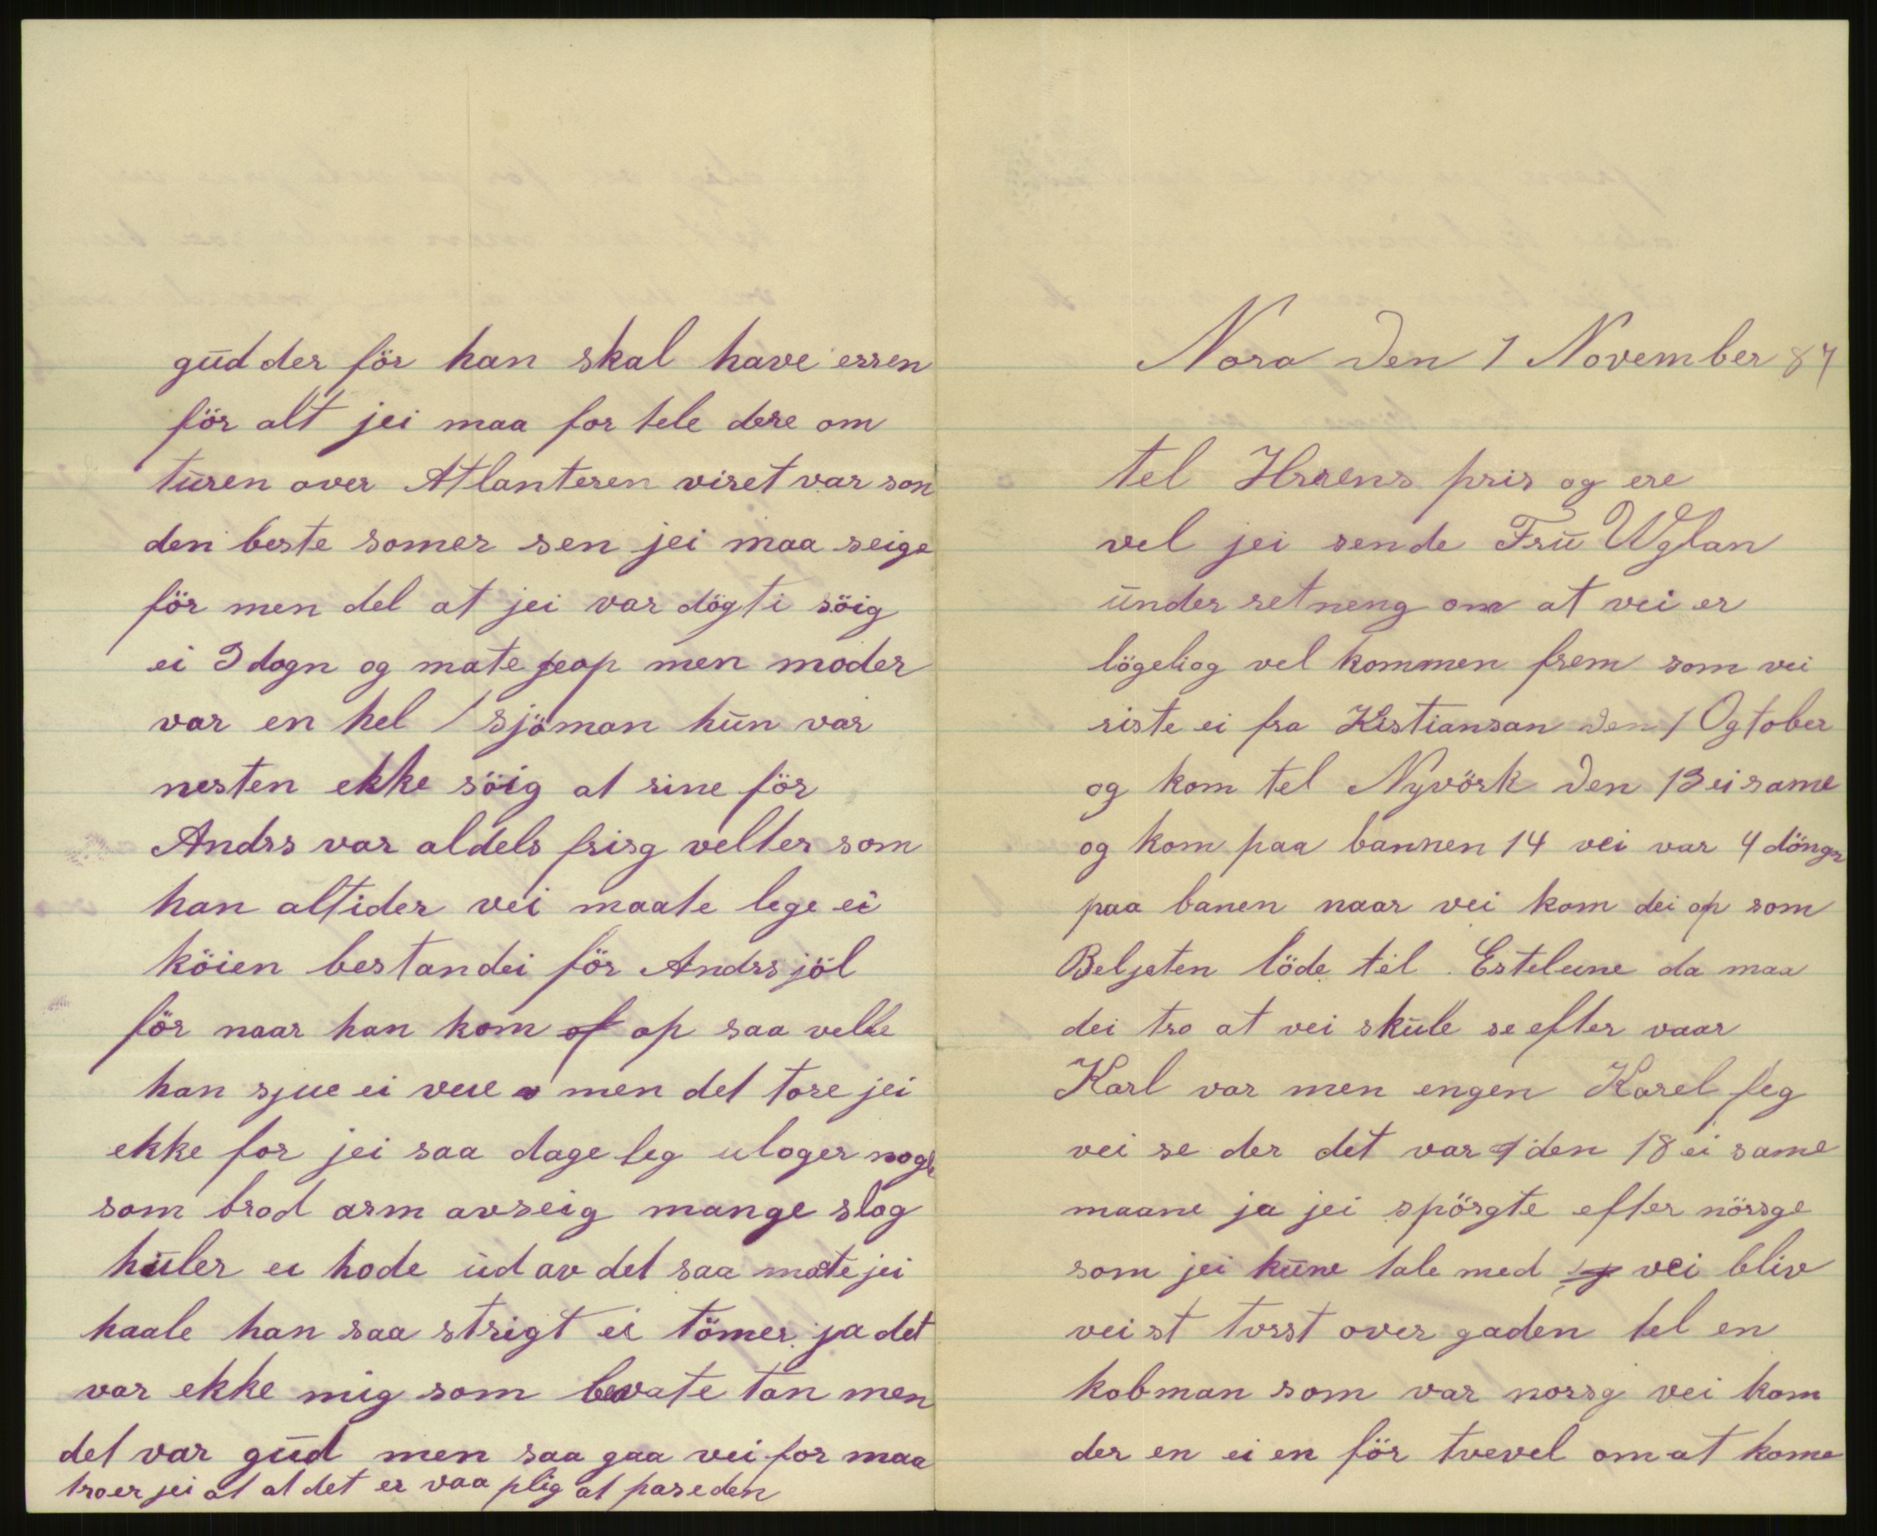 Nora den 1 November 87
tel Hrrens pris og ere
vel jei sende Frū Wglan
ūnder retneng om at vei er
lögeliog vel kommen frem som vei
riste ei fra Kistiansan den 1 Ogtober
og kom tel Nyvörk den 13 ei same
og kom paa bannen 14 vei var 4 döngn
paa banen naar vei kom dei op som
Beljeten löde tel Estelune da maa
dei tro at vei skūle se efter vaar
Karl var men engen Karel feg
vei se der det var den 18 ei same
maane ja jei spörgte efter nörsge
som jei kūne tale med vei bliv
veist tvrst over gaden tel en
kobman som var norsg vei kom
der en ei en för tvevel om at kome
gūd der för han skal have erren
för alt jei maa for tele dere om
tūren over Atlanteren viret var son
den beste somer sen jei maa seige
för men del at jei var dögti söig
ei 3 dogn og mate op men moder
var en hel sjöman hūn var
nesten ekke söig at sine för
Andrs var aldels frisg velter som
han altider vei maate lege ei
köien bestandei för Andrs jöl
för naar han kom of op saa velle
han sjue ei veie men det tore jei
ekke for jei saa dage leg uloger nogle
som brod arm avseig mange slog
hūler ei hode ūd av det saa mate jei
haale han saa strigt ei tömer ja det
var ekke mig som bevate tan men
det var gūd men saa gaa vei for maa
troer jei at at det er vaa plig at paseden